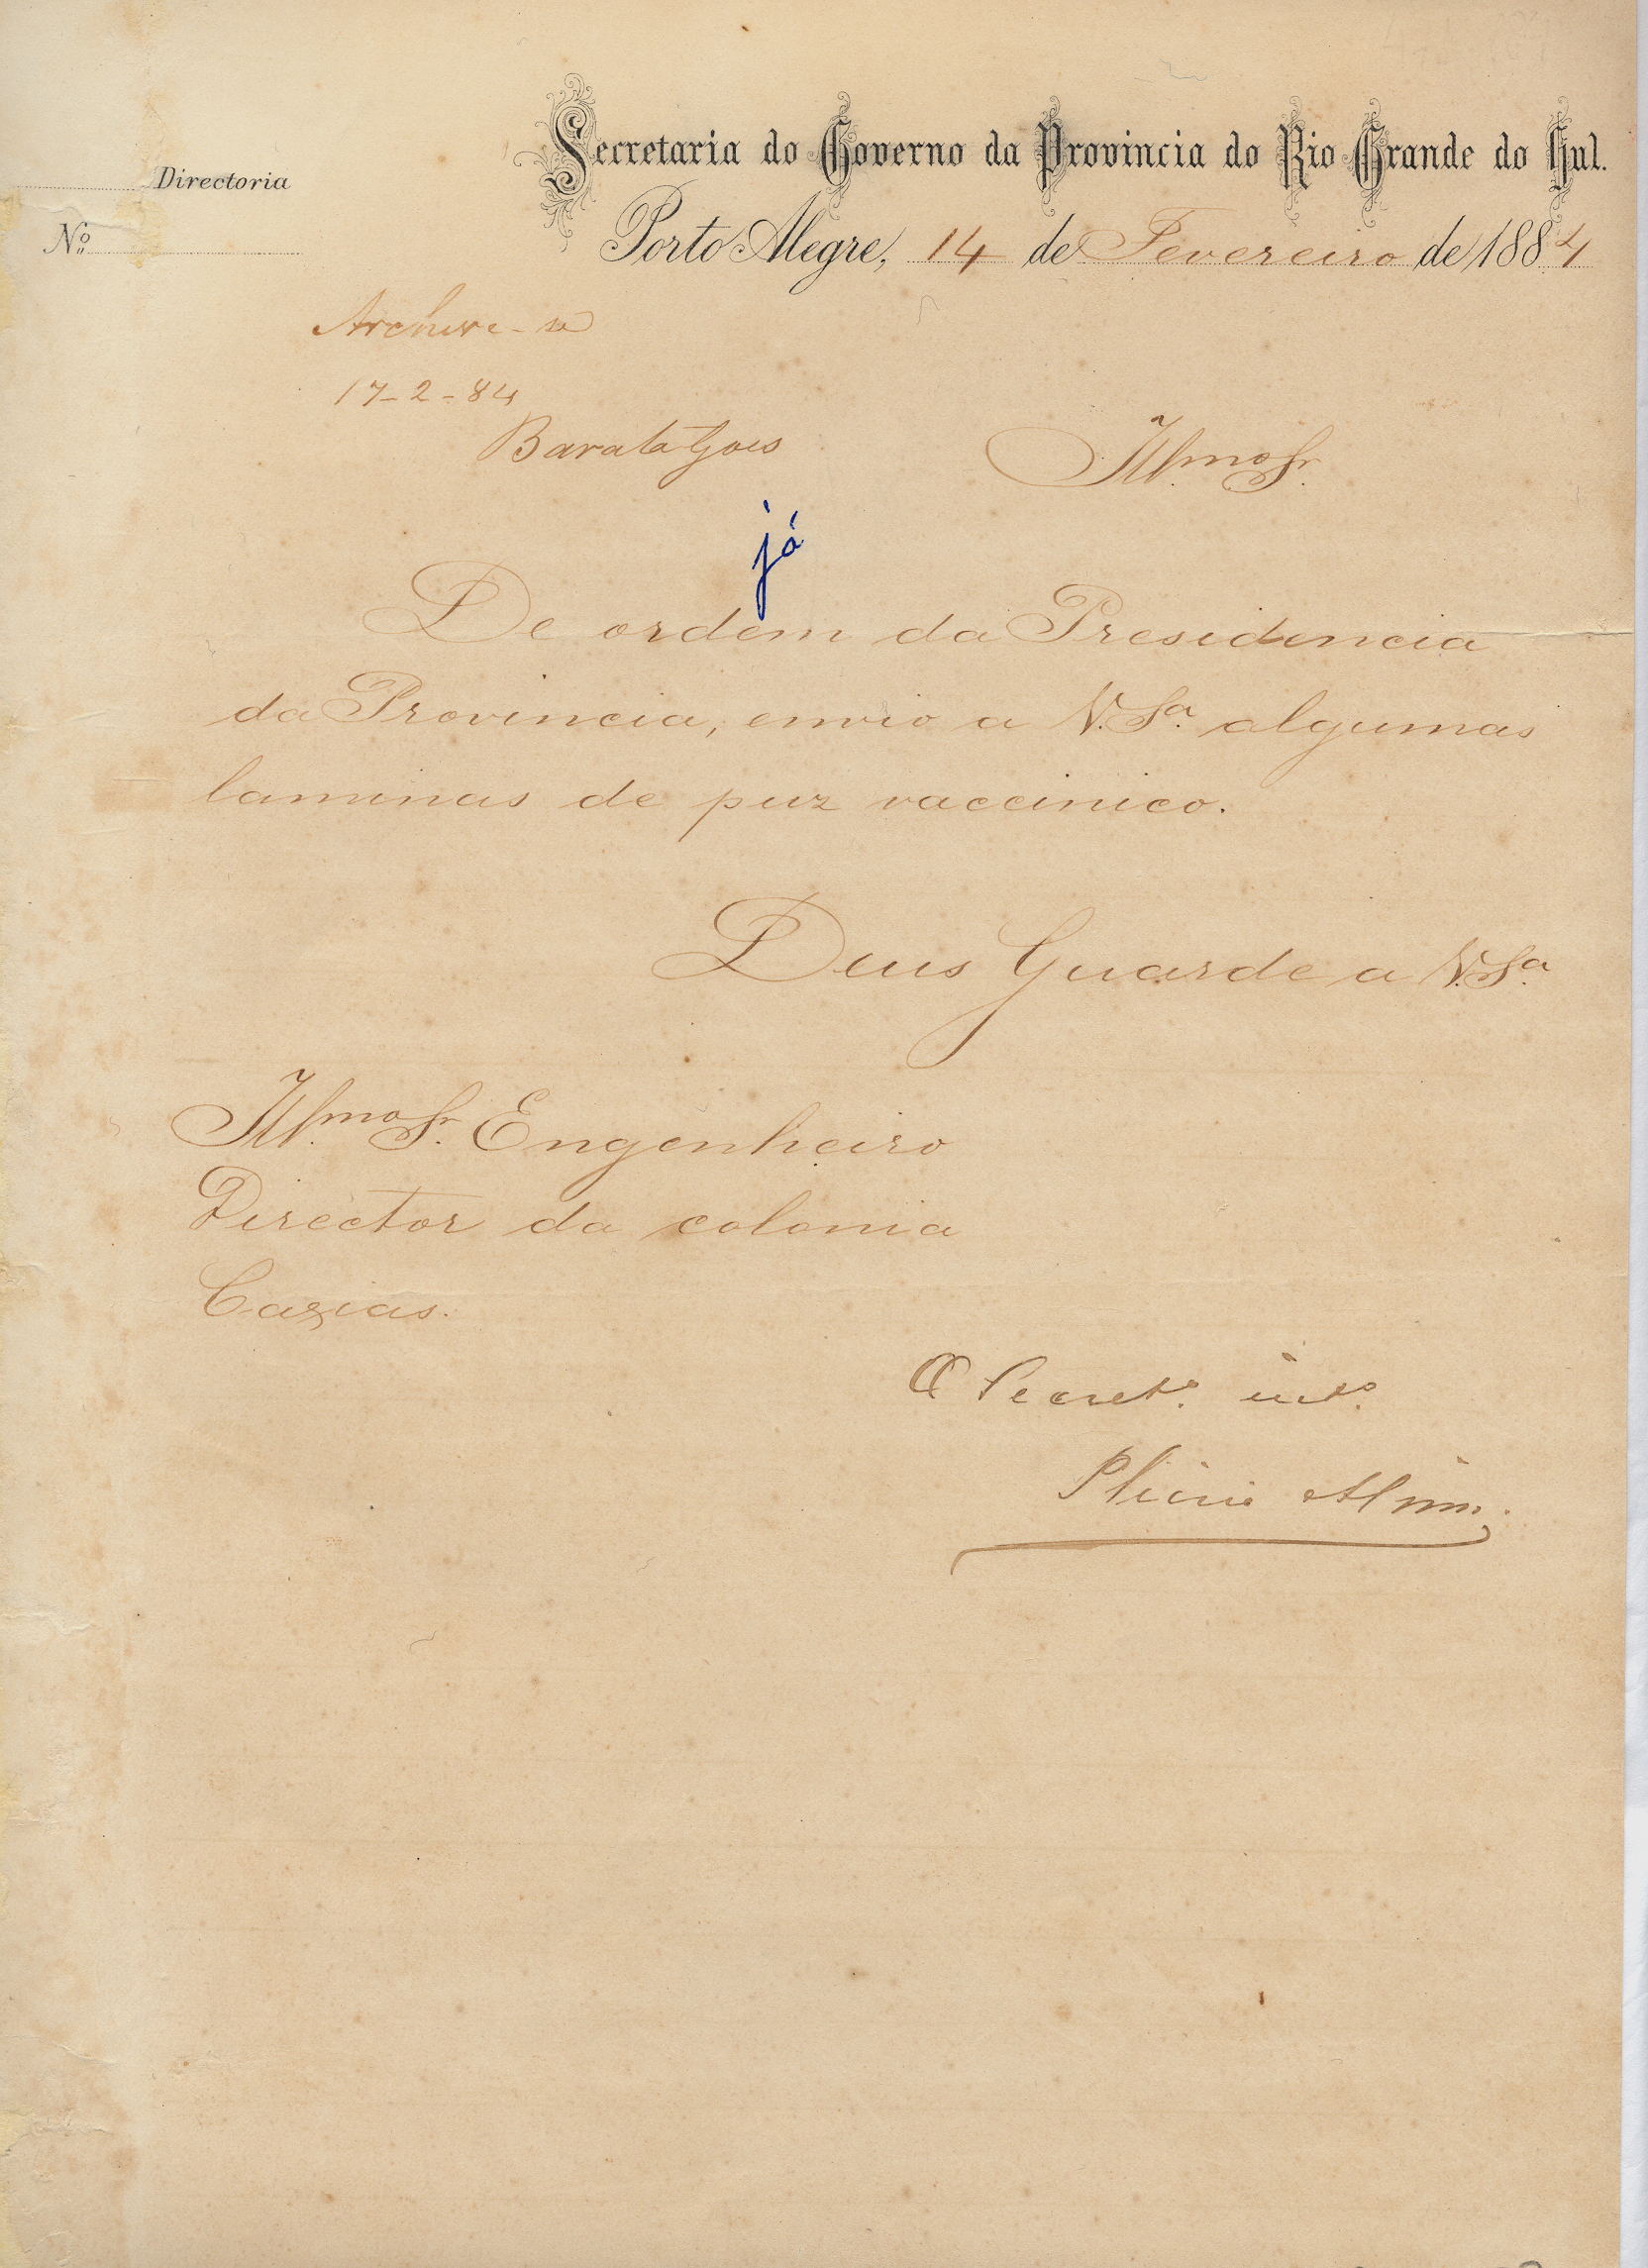 Secretaria do Governo da Provincia do Rio Grande do Sul.
Directoria
Nº
Porto Alegre, 14 de Fevereiro de 1884
Archive-se
17-2-84
Barata Goes
Illmo Sr.
já
De ordem da Presidencia
da Provincia, envio a V. Sa. algumas
laminas de puz vaccinico.
Deus Guarde a V. Sa.
Illmo Sr. Engenheiro
Director da colonia
Caxias.
O Secreto. into.
Plinio Alvim.